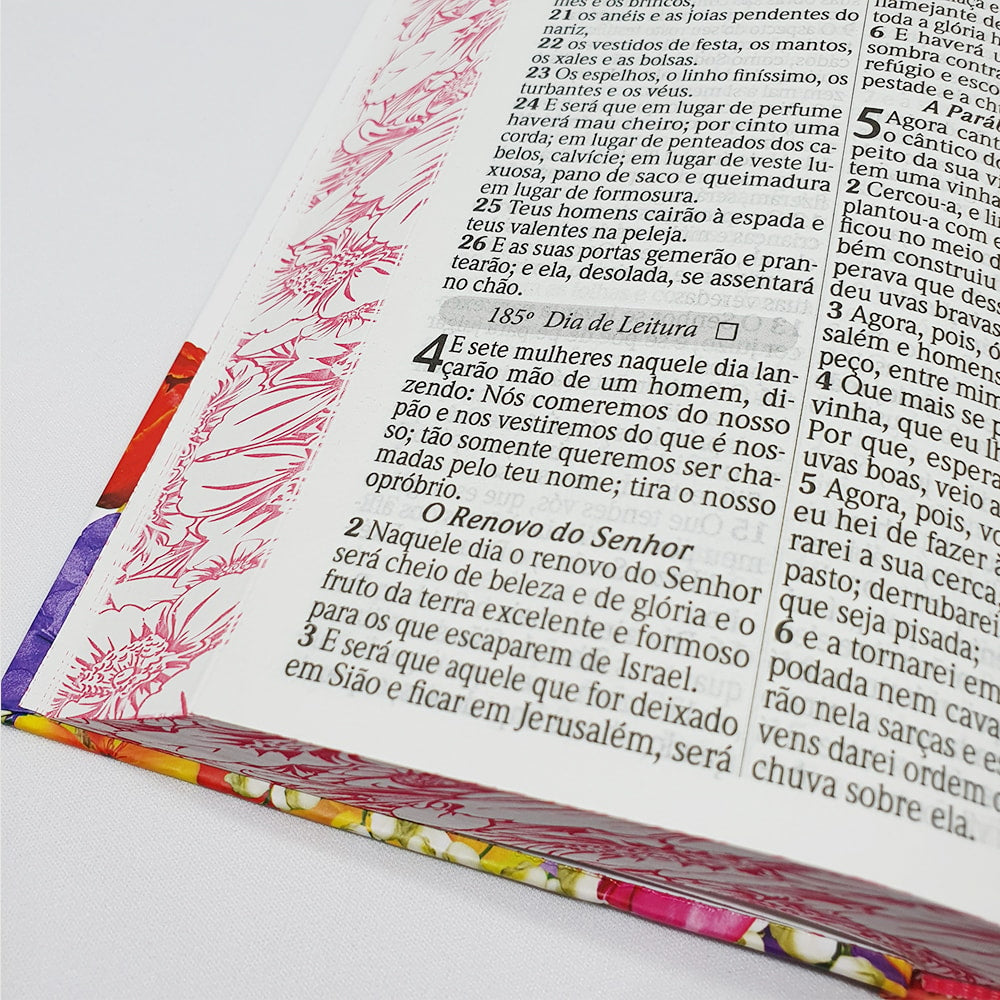 mes e os brincos,
21 os anéis e as joias pendentes do
nariz,
22 os vestidos de festa, os mantos,
os xales e as bolsas.
23 Os espelhos, o linho finíssimo, os
turbantes e os véus.
24 E será que em lugar de perfume
haverá mau cheiro; por cinto uma
corda; em lugar de penteados dos ca-
belos, calvície; em lugar de veste lu-
xuosa, pano de saco e queimadura
em lugar de formosura.
25 Teus homens cairão à espada e
teus valentes na peleja.
26 E as suas portas gemerão e pran-
tearão; e ela, desolada, se assentará
no chão.
185º Dia de Leitura
4 E sete mulheres naquele dia lan-
çarão mão de um homem, di-
zendo: Nós comeremos do nosso
pão e nos vestiremos do que é nos-
so; tão somente queremos ser cha-
madas pelo teu nome; tira o nosso
opróbrio.
O Renovo do Senhor
2 Naquele dia o renovo do Senhor
será cheio de beleza e de glória e o
fruto da terra excelente e formoso
para os que escaparem de Israel.
3 E será que aquele que for deixado
em Sião e ficar em Jerusalém, será
flamejante de
toda a glória h
6 E haverá u
sombra contra
refúgio e esco
pestade e a chu
A Paráb
5 Agora cant
o cântico do
peito da sua vi
tem uma vinha
2 Cercou-a, e li
plantou-a com e
ficou no meio d
bém construiu
perava que dess
deu uvas bravas
3 Agora, pois, ó
salém e homens
peço, entre mim
4 Que mais se p
vinha, que eu lh
Por que, espera
uvas boas, veio a
5 Agora, pois, vo
eu hei de fazer à
rarei a sua cerca,
pasto; derrubarei
que seja pisada;
6 e a tornarei em
podada nem cava
rão nela sarças e es
vens darei ordem d
chuva sobre ela.